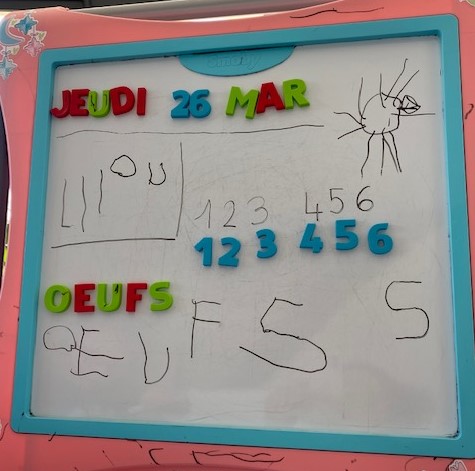 JEUDI 26 MAR
LIIOU
123 456
123 456
OEUFS
OEUFS S